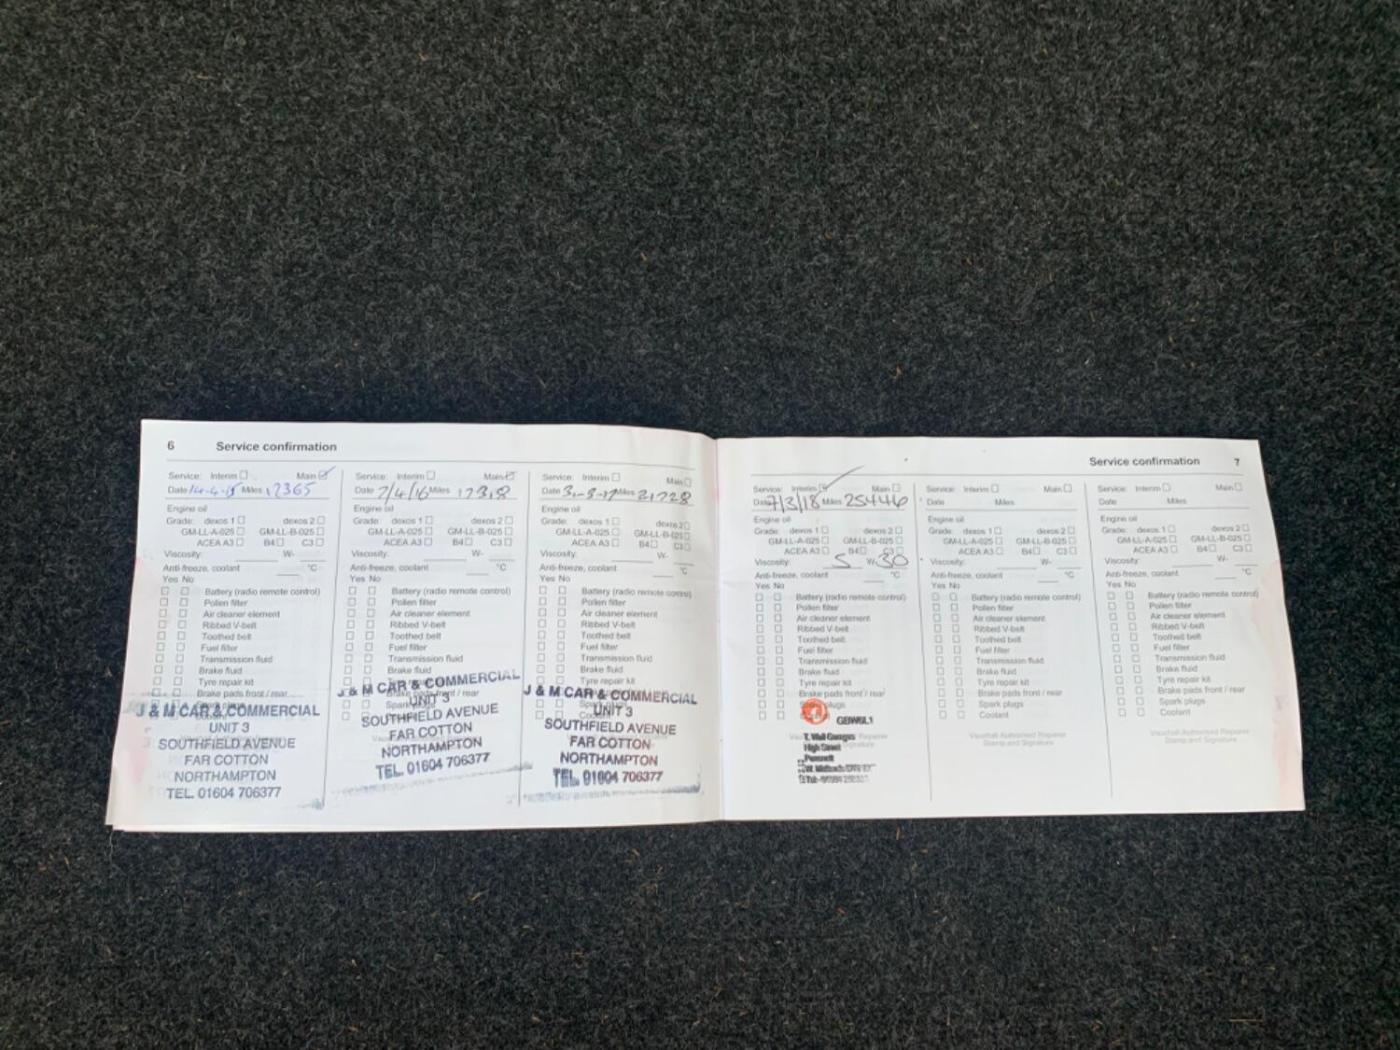 6 Service confirmation
Service: Interim Main
Date 14-4-15 Miles 12365
Engine oil
Grade: dexos 1 dexos 2
GM-LL-A-025 GM-LL-B-025
ACEA A3 B4 C3
Viscosity: W-
Anti-freeze, coolant °C
Yes No
Battery (radio remote control)
Pollen filter
Air cleaner element
Ribbed V-belt
Toothed belt
Fuel filter
Transmission fluid
Brake fluid
Tyre repair kit
Brake pads front / rear
J & M CAR & COMMERCIAL
UNIT 3
SOUTHFIELD AVENUE
FAR COTTON
NORTHAMPTON
TEL. 01604 706377
Service: Interim Main
Date 7/4/16 Miles 17318
Engine oil
Grade: dexos 1 dexos 2
GM-LL-A-025 GM-LL-B-025
ACEA A3 B4 C3
Viscosity: W-
Anti-freeze, coolant °C
Yes No
Battery (radio remote control)
Pollen filter
Air cleaner element
Ribbed V-belt
Toothed belt
Fuel filter
Transmission fluid
Brake fluid
J & M CAR & COMMERCIAL
Brake pads front / rear
UNIT 3
SOUTHFIELD AVENUE
FAR COTTON
NORTHAMPTON
TEL. 01604 706377
Service: Interim Main
Date 3-3-17 Miles 21728
Engine oil
Grade: dexos 1 dexos 2
GM-LL-A-025 GM-LL-B-025
ACEA A3 B4 C3
Viscosity: W-
Anti-freeze, coolant °C
Yes No
Battery (radio remote control)
Pollen filter
Air cleaner element
Ribbed V-belt
Toothed belt
Fuel filter
Transmission fluid
Brake fluid
Tyre repair kit
Brake pads front / rear
J & M CAR & COMMERCIAL
UNIT 3
SOUTHFIELD AVENUE
FAR COTTON
NORTHAMPTON
TEL. 01604 706377
Service confirmation 7
Service: Interim Main
Date 7/3/18 Miles 25446
Engine oil
Grade: dexos 1 dexos 2
GM-LL-A-025 GM-LL-B-025
ACEA A3 B4 C3
Viscosity: 5 W-30
Anti-freeze, coolant °C
Yes No
Battery (radio remote control)
Pollen filter
Air cleaner element
Ribbed V-belt
Toothed belt
Fuel filter
Transmission fluid
Brake fluid
Tyre repair kit
Brake pads front / rear
Spark plugs
T. Wall Garages
High Street
Pensnett
Service: Interim Main
Date Miles
Engine oil
Grade: dexos 1 dexos 2
GM-LL-A-025 GM-LL-B-025
ACEA A3 B4 C3
Viscosity: W-
Anti-freeze, coolant °C
Yes No
Battery (radio remote control)
Pollen filter
Air cleaner element
Ribbed V-belt
Toothed belt
Fuel filter
Transmission fluid
Brake fluid
Tyre repair kit
Brake pads front / rear
Spark plugs
Coolant
Vauxhall Authorised Repairer
Stamp and Signature
Service: Interim Main
Date Miles
Engine oil
Grade: dexos 1 dexos 2
GM-LL-A-025 GM-LL-B-025
ACEA A3 B4 C3
Viscosity: W-
Anti-freeze, coolant °C
Yes No
Battery (radio remote control)
Pollen filter
Air cleaner element
Ribbed V-belt
Toothed belt
Fuel filter
Transmission fluid
Brake fluid
Tyre repair kit
Brake pads front / rear
Spark plugs
Coolant
Vauxhall Authorised Repairer
Stamp and Signature